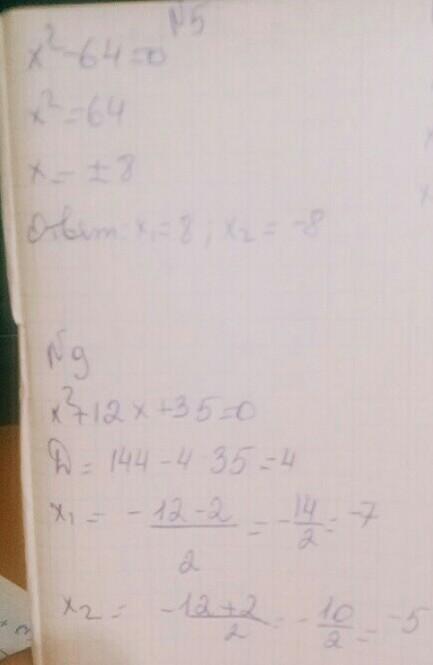 №5
x²-64=0
x²=64
x=±8
Ответ: x₁=8; x₂=-8
№9
x²+12x+35=0
D=144-4·35=4
x₁= -12-2/2 = -14/2 = -7
x₂= -12+2/2 = -10/2 = -5